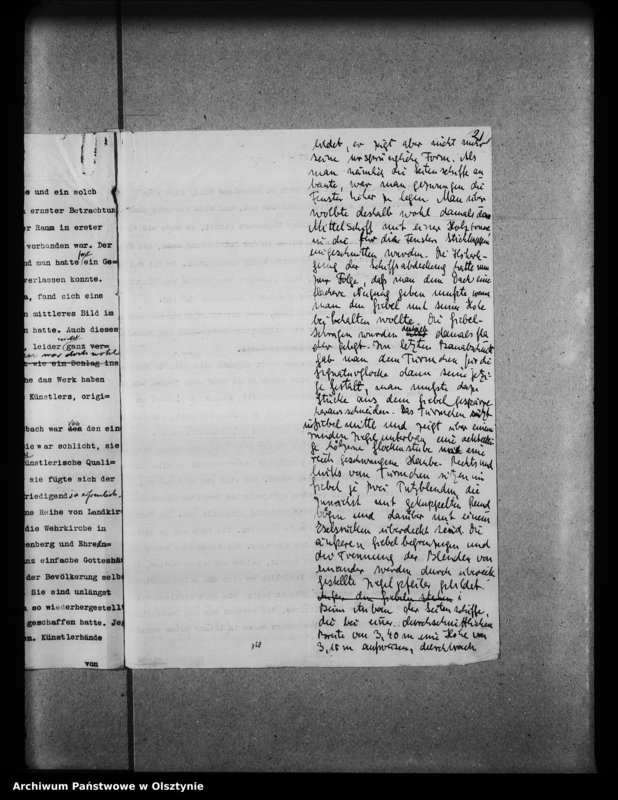 e und ein solch
n ernster Betrachtun
er Raum in erster
vorhanden war. Der
nd man hatte fast ein Ge=
verlassen konnte.
n, fand sich eine
n mittleres Bild im
n hatte. Auch dieses
, leider (ganz ver=
wie ein Schlag ins
he das Werk haben
Künstlers, origi=
bach war den den ein
ie war schlicht, sie
ünstlerische Quali=
sie fügte sich der
riedigend
ne Reihe von Landkir
die Wehrkirche in
enberg und Ehren=
nz einfache Gotteshä
der Bevölkerung selbs
Sie sind unlängst
n so wiederhergestellt
geschaffen hatte. Je
n. Künstlerhände
von
21
bildet, er zeigt aber nicht mehr
seine ursprüngliche Form. Als
man nämlich die Seitenschiffe an
baute, war man gezwungen die
Fenster höher zu legen. Man über
wölbte deshalb wohl damals das
Mittelschiff mit einer Holztonne
in die für die Fenster Stichkappen
eingeschnitten wurden. Die Höherle-
gung der Schiffsabdeckung hatte nun
zur Folge, daß man dem Dach eine
flachere Neigung geben mußte wenn
man den Giebel mit seiner Höhe
beibehalten wollte. Die Giebel-
schrägen wurden damals fla
cher gelegt. Im letzten Bauabschnitt
gab man dem Türmchen für die
Signaturglocke dann seine jetzi-
ge Gestalt, man mußte dazu
Stücke aus dem Giebel
herausschneiden. Das Türmchen sitzt
in Giebelmitte und zeigt über einem
runden Ziegelunterbau eine achtecki-
ge hölzerne Glockenstube und eine
reich geschwungene Haube. Rechts und
links vom Türmchen sitzen im
Giebel je zwei Putzblenden, die
zunächst mit gekuppelten Rund
bögen und darüber mit einem
Eselsrücken überdeckt sind. Die
äußeren Giebelbegrenzungen und
die Trennung der Blenden von
einander werden durch übereck
gestellte Ziegelpfeiler gebildet.
Beim Anbau der Seitenschiffe,
die bei einer durchschnittlichen
Breite von 3,40 m eine Höhe von
3,10 m aufweisen, durchbrach
Archiwum Państwowe w Olsztynie